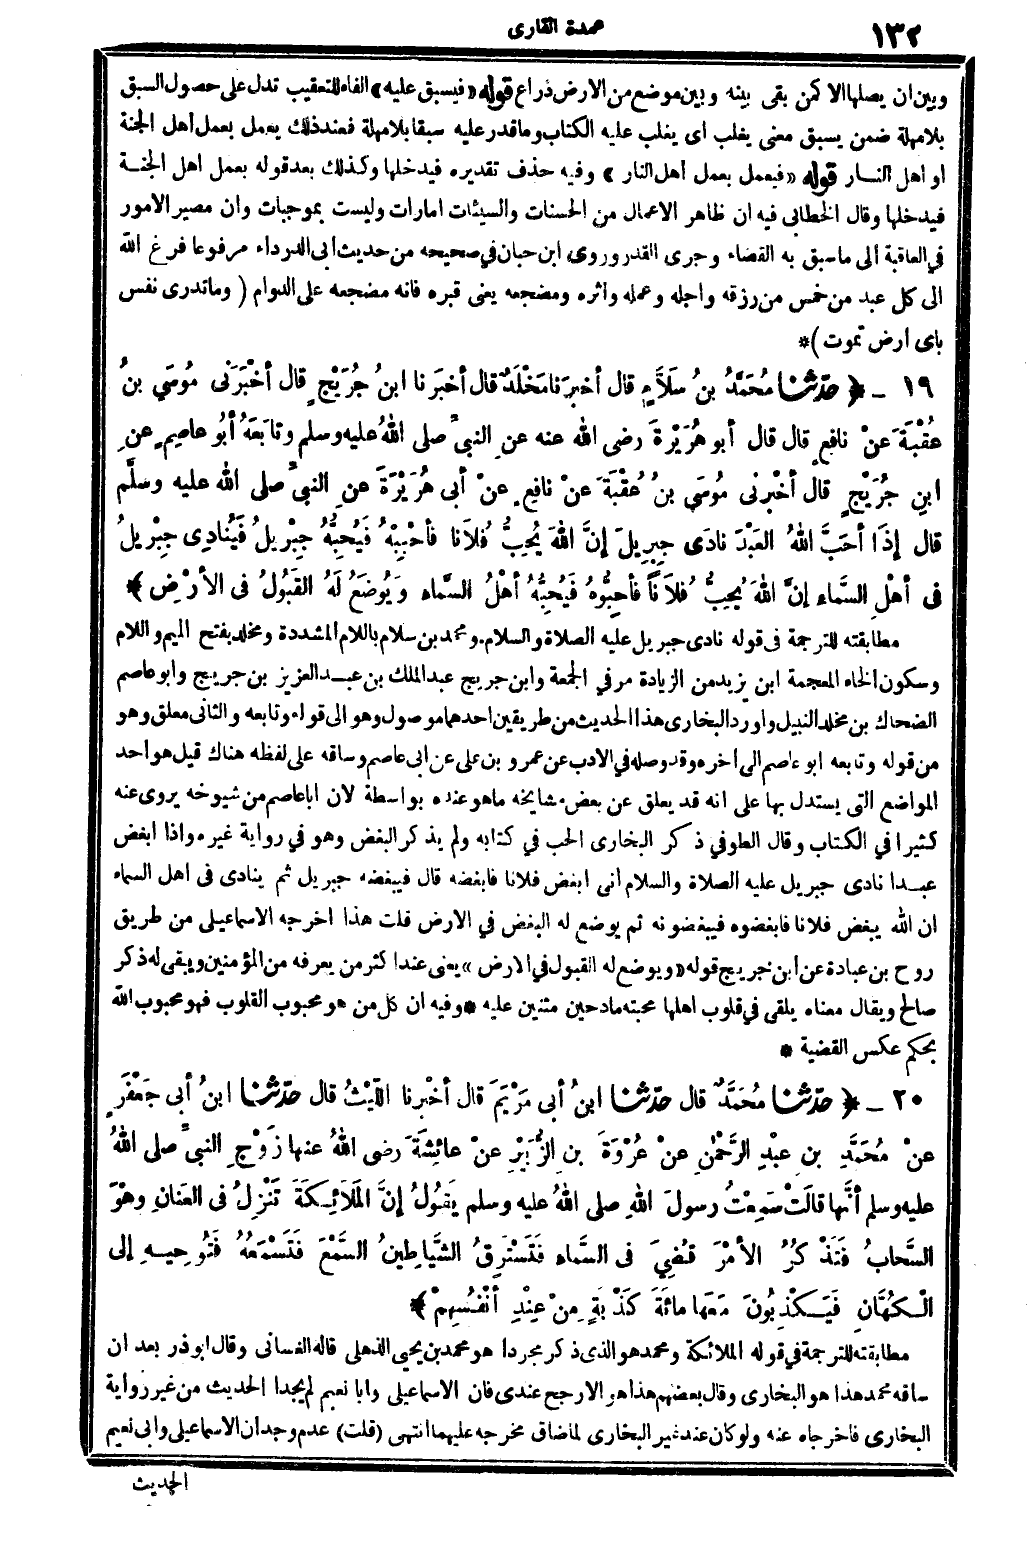 ١٣٢
عمدة القارى
وبين ان يصلها الا كمن بقى بينه وبين موضع من الارض ذراع قوله «فيسبق عليه» الفاء للتعقيب تدل على حصول السبق
بلا مهلة ضمن يسبق معنى يغلب اى يغلب عليه الكتاب وما قدر عليه سبقا بلا مهلة فعند ذلك يعمل بعمل أهل الجنة
او اهل النار قوله «فيعمل بعمل أهل النار» وفيه حذف تقديره فيدخلها وكذلك بعد قوله بعمل اهل الجنة
فيدخلها وقال الخطابى فيه ان ظاهر الاعمال من الحسنات والسيئات امارات وليست بموجبات وان مصير الامور
في العاقبة ألى ما سبق به القضاء وجرى القدر وروى ابن حبان في صحيحه من حديث أبى الدرداء مرفوعا فرغ الله
الى كل عبد من خمس من رزقه واجله وعمله واثره ومضجعه يعنى قبره فانه مضجعه على الدوام (وما تدرى نفس
باى ارض تموت)*
١٩ - ﴿ حدّثنا مُحَمَّدُ بنُ سَلاَمٍ قال أخبرَنا مَخْلَدٌ قال أخبَرَنا ابنُ جُرَيْجٍ قال أخْبَرَنى مُوسَى بنُ
عُقْبَةَ عنْ نافِعٍ قال قال أبو هُرَيْرَةَ رضى الله عنه عنِ النبىِّ صلى اللهُ عليه وسلم وتابَعَهُ أبُو عاصِمٍ عنِ
ابنِ جُرَيْجٍ قال أخْبرنى مُوسَى بنُ عُقْبَةَ عنْ نافِعٍ عنْ أبى هُرَيْرَةَ عنِ النبىِّ صلى الله عليه وسلَّم
قال إذَا أحَبَّ اللهُ العَبْدَ نادَى جِبرِيلَ إنَّ اللهَ يُحِبُّ فُلاَنا فأحْبِبْهُ فَيُحِبُّهُ جِبْرِيلُ فَيُنادِى جِبْرِيلُ
فى أهْلِ السَّماءِ إنَّ اللهَ يُحِبُّ فُلاَناً فأحِبُّوهُ فَيُحِبُّهُ أهْلُ السَّماءِ وَيُوضَعُ لَهُ القَبُولُ فى الأرْضِ ﴾
مطابقته للترجمة فى قوله نادى جبريل عليه الصلاة والسلام. ومحمد بن سلام باللام المشددة ومخلد بفتح الميم واللام
وسكون الخاء المعجمة ابن يزيد من الزيادة مر في الجمعة وابن جريج عبد الملك بن عبد العزيز بن جريج وابو عاصم
الضحاك بن مخلد النبيل واورد البخارى هذا الحديث من طريقين احدهما موصول وهو الى قوله وتابعه والثانى معلق وهو
من قوله وتابعه ابو عاصم الى آخره وقد وصله في الادب عن عمرو بن على عن ابى عاصم وساقه على لفظه هناك قيل هو احد
المواضع التى يستدل بها على انه قد يعلق عن بعض مشايخه ما هو عنده بواسطة لان ابا عاصم من شيوخه يروى عنه
كثيرا في الكتاب وقال الطوفي ذكر البخارى الحب في كتابه ولم يذكر البغض وهو في رواية غيره واذا ابغض
عبدا نادى جبريل عليه الصلاة والسلام انى ابغض فلانا فابغضه قال فيبغضه جبريل ثم ينادى فى اهل السماء
ان الله يبغض فلانا فابغضوه فيبغضونه ثم يوضع له البغض في الارض قلت هذا اخرجه الاسماعيلى من طريق
روح بن عبادة عن ابن جريج قوله «ويوضع له القبول في الارض» يعنى عند اكثر من يعرفه من المؤمنين ويبقى له ذكر
صالح ويقال معناه يلقى في قلوب اهلها محبته مادحين مثنين عليه * وفيه ان كل من هو محبوب القلوب فهو محبوب الله
بحكم عكس القضية *
٢٠ - ﴿ حدّثنا مُحَمَّدٌ قال حدّثنا ابنُ أبى مَرْيَمَ قال أخْبرنا اللَّيْثُ قال حدّثنا ابنُ أبى جَعْفَرٍ
عنْ مُحَمَّدِ بنِ عبْدِ الرَّحْمٰنِ عنْ عُرْوَةَ بنِ الزُّبَيْرِ عنْ عائِشَةَ رضى اللهُ عنها زَوْجِ النبىِّ صلى اللهُ
عليه وسلم أنَّها قالَتْ سَمِعْتُ رسولَ اللهِ صلى اللهُ عليه وسلم يَقُولُ إنَّ المَلاَئِكَةَ تَنْزِلُ فى العَنانِ وهْوَ
السَّحابُ فَتَذْكُرُ الأمْرَ قُضِىَ فى السَّماءِ فَتَسْتَرِقُ الشَّياطِينُ السَّمْعَ فَتَسْمَعُهُ فَتُوحِيهِ إلى
الْكُهَّانِ فَيَكْذِبُونَ مَعَها مائَةَ كَذْبَةٍ مِنْ عِنْدِ أنْفُسِهِمْ ﴾
مطابقته للترجمة في قوله الملائكة ومحمد هو الذى ذكر مجردا هو محمد بن يحيى الذهلى قاله الغسانى وقال ابو ذر بعد ان
ساقه محمد هذا هو البخارى وقال بعضهم هذا هو الارجح عندى فان الاسماعيلى وابا نعيم لم يجدا الحديث من غير رواية
البخارى فاخرجاه عنه ولو كان عند غير البخارى لما ضاق مخرجه عليهما انتهى (قلت) عدم وجدان الاسماعيلى وابى نعيم
الحديث